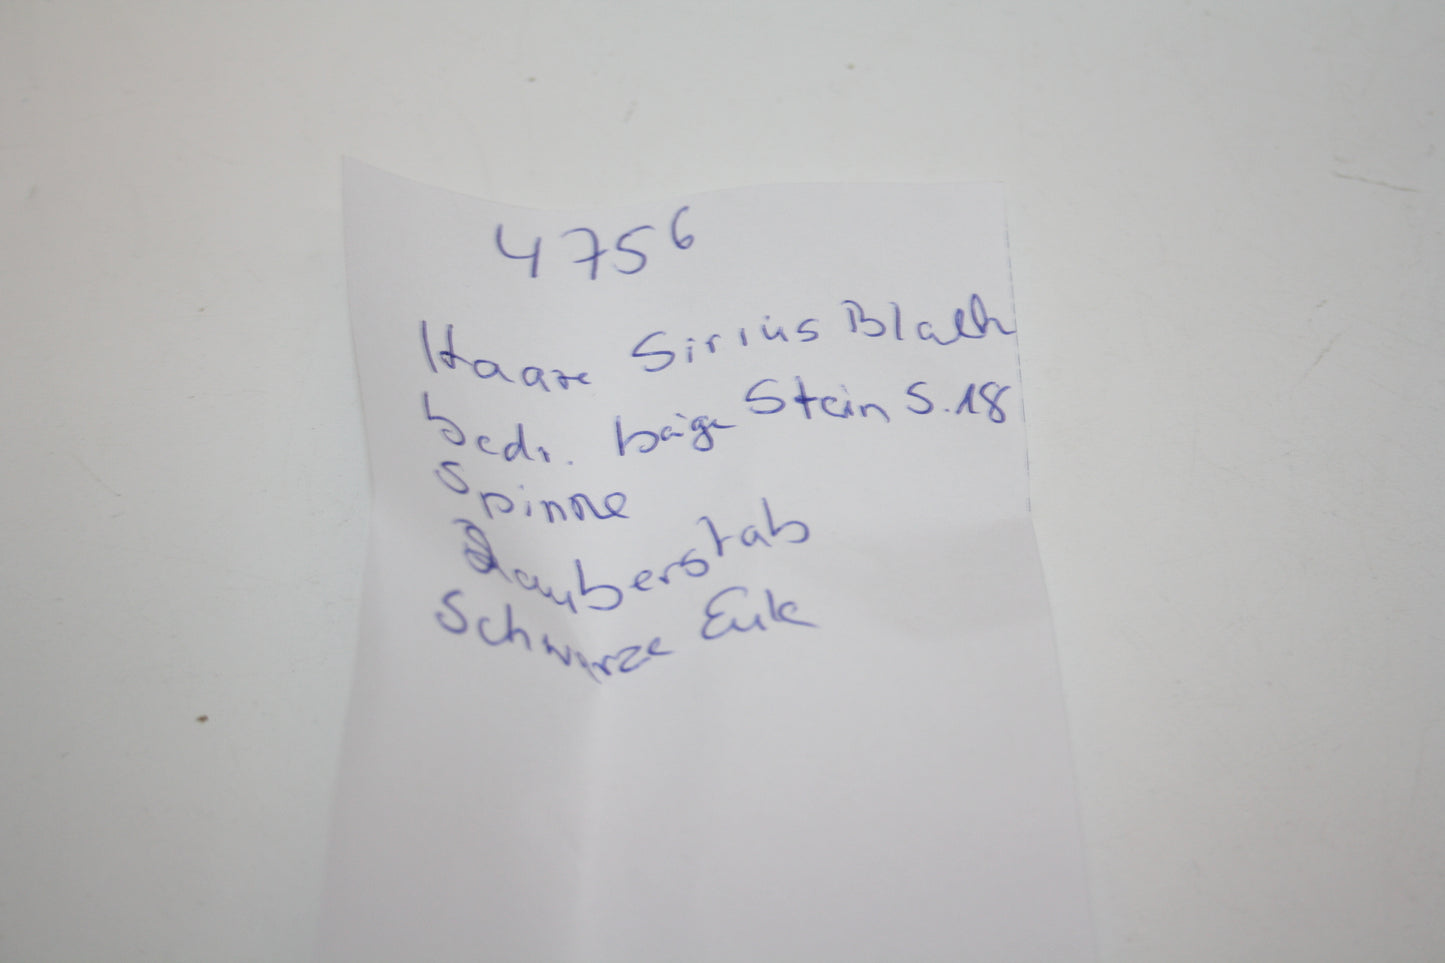 4756
Haare Sirius Black
bedr. beige Stein S.18
Spinne
Zauberstab
Schwarze Eule